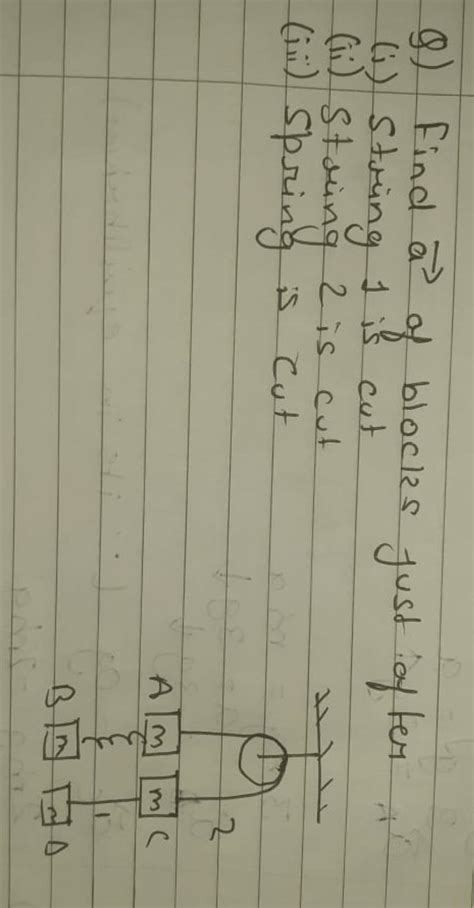 Q) Find a→ of blocks just after
(i) String 1 is cut
(ii) String 2 is cut
(iii) Spring is cut
2
A m m C
1
B m m D